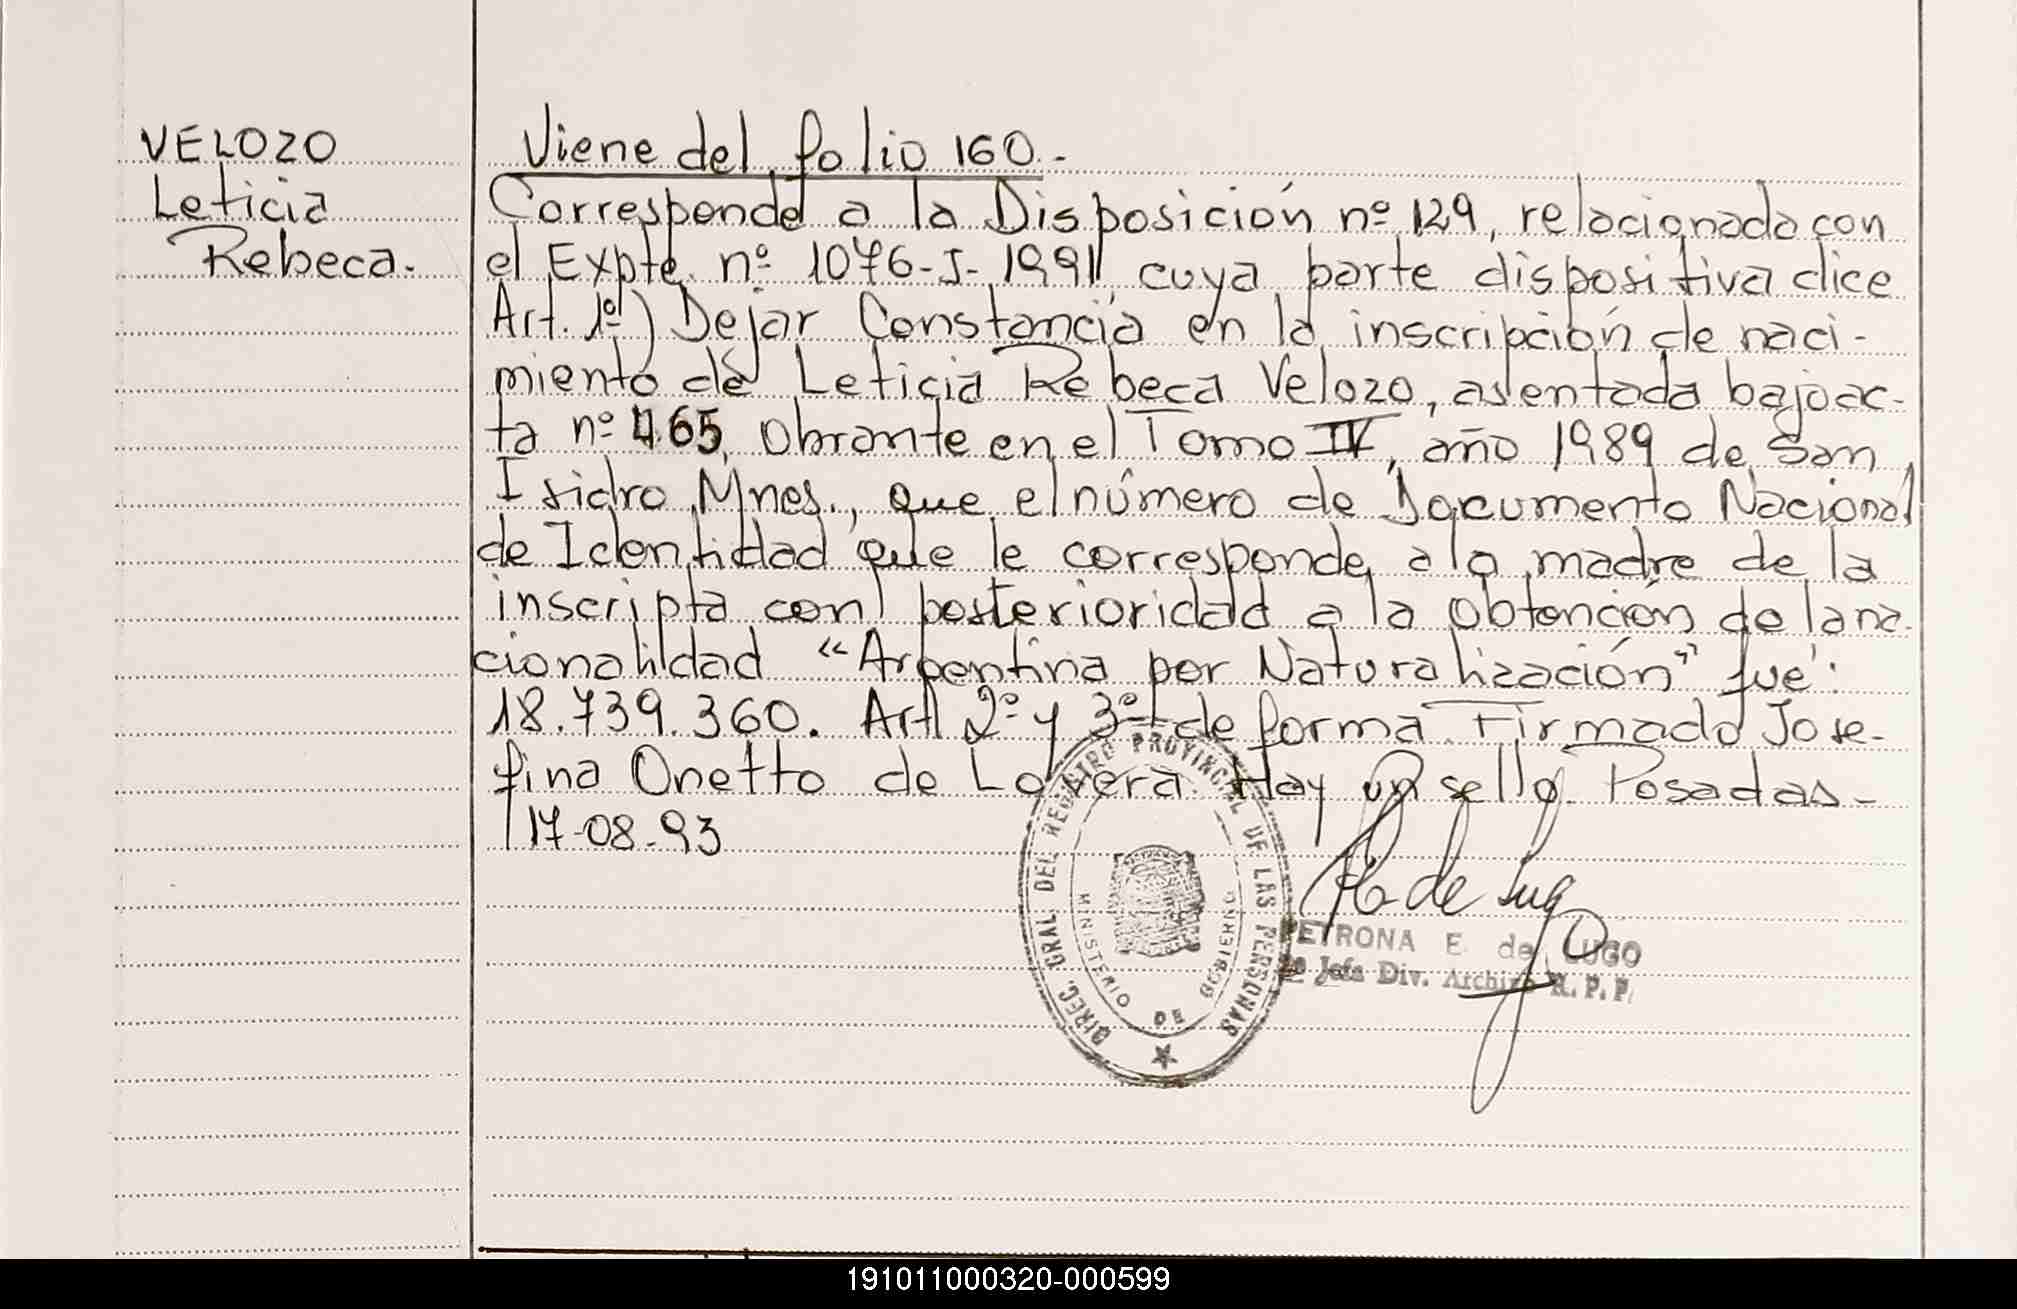 VELOZO
Leticia
Rebeca.
Viene del folio 160.-
Corresponde a la Disposición nº 129, relacionada con
el Expte. nº 1076-J-1991, cuya parte dispositiva dice
Art. 1º) Dejar Constancia en la inscripción de naci-
miento de Leticia Rebeca Velozo, asentada bajo ac-
ta nº 465, Obrante en el Tomo IV, año 1989 de San
Isidro Mnes., que el número de Documento Nacional
de Identidad que le corresponde a la madre de la
inscripta con posterioridad a la obtención de la na-
cionalidad "Argentina por Naturalización" fue:
18.739.360. Art 2º y 3º de forma. Firmado Jose-
fina Onetto de Lovera. Hay un sello. Posadas-
17-08-93
DIREC. GRAL. DEL REGISTRO PROVINCIAL DE LAS PERSONAS
MINISTERIO DE GOBIERNO
de Lugo
PETRONA E. de LUGO
Jefa Div. Archivo R. P. P.
191011000320-000599